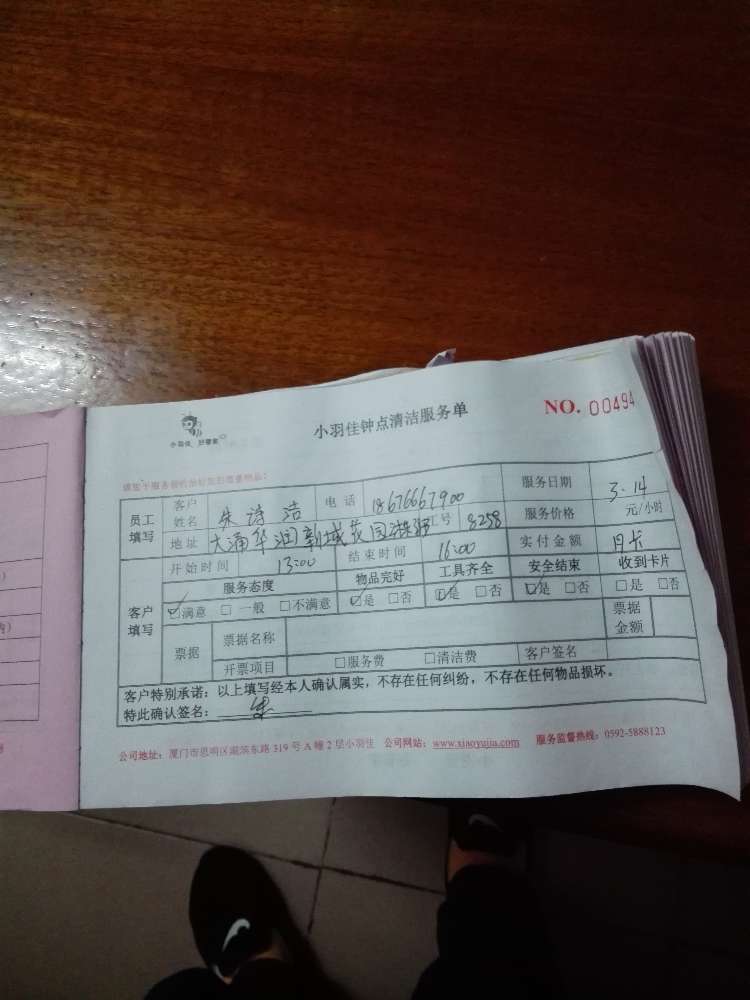 小羽佳钟点清洁服务单
NO. 00494
员工填写 客户姓名 朱诗洁 电话 18676667900 服务日期 3.14
地址 大涌华润新城花园 工号 8258 服务价格 元/小时
开始时间 13:00 结束时间 16:00 实付金额 月卡
客户填写 服务态度 物品完好 工具齐全 安全结束 收到卡片
☑满意 □一般 □不满意 ☑是 □否 ☑是 □否 ☑是 □否 □是 □否
票据 票据名称 票据金额
开票项目 □服务费 □清洁费 客户签名
客户特别承诺:以上填写经本人确认属实,不存在任何纠纷,不存在任何物品损坏。
特此确认签名: 朱
公司地址:厦门市思明区湖滨东路 319 号 A 幢 2 层小羽佳 公司网站:www.xiaoyujia.com 服务监督热线:0592-5888123